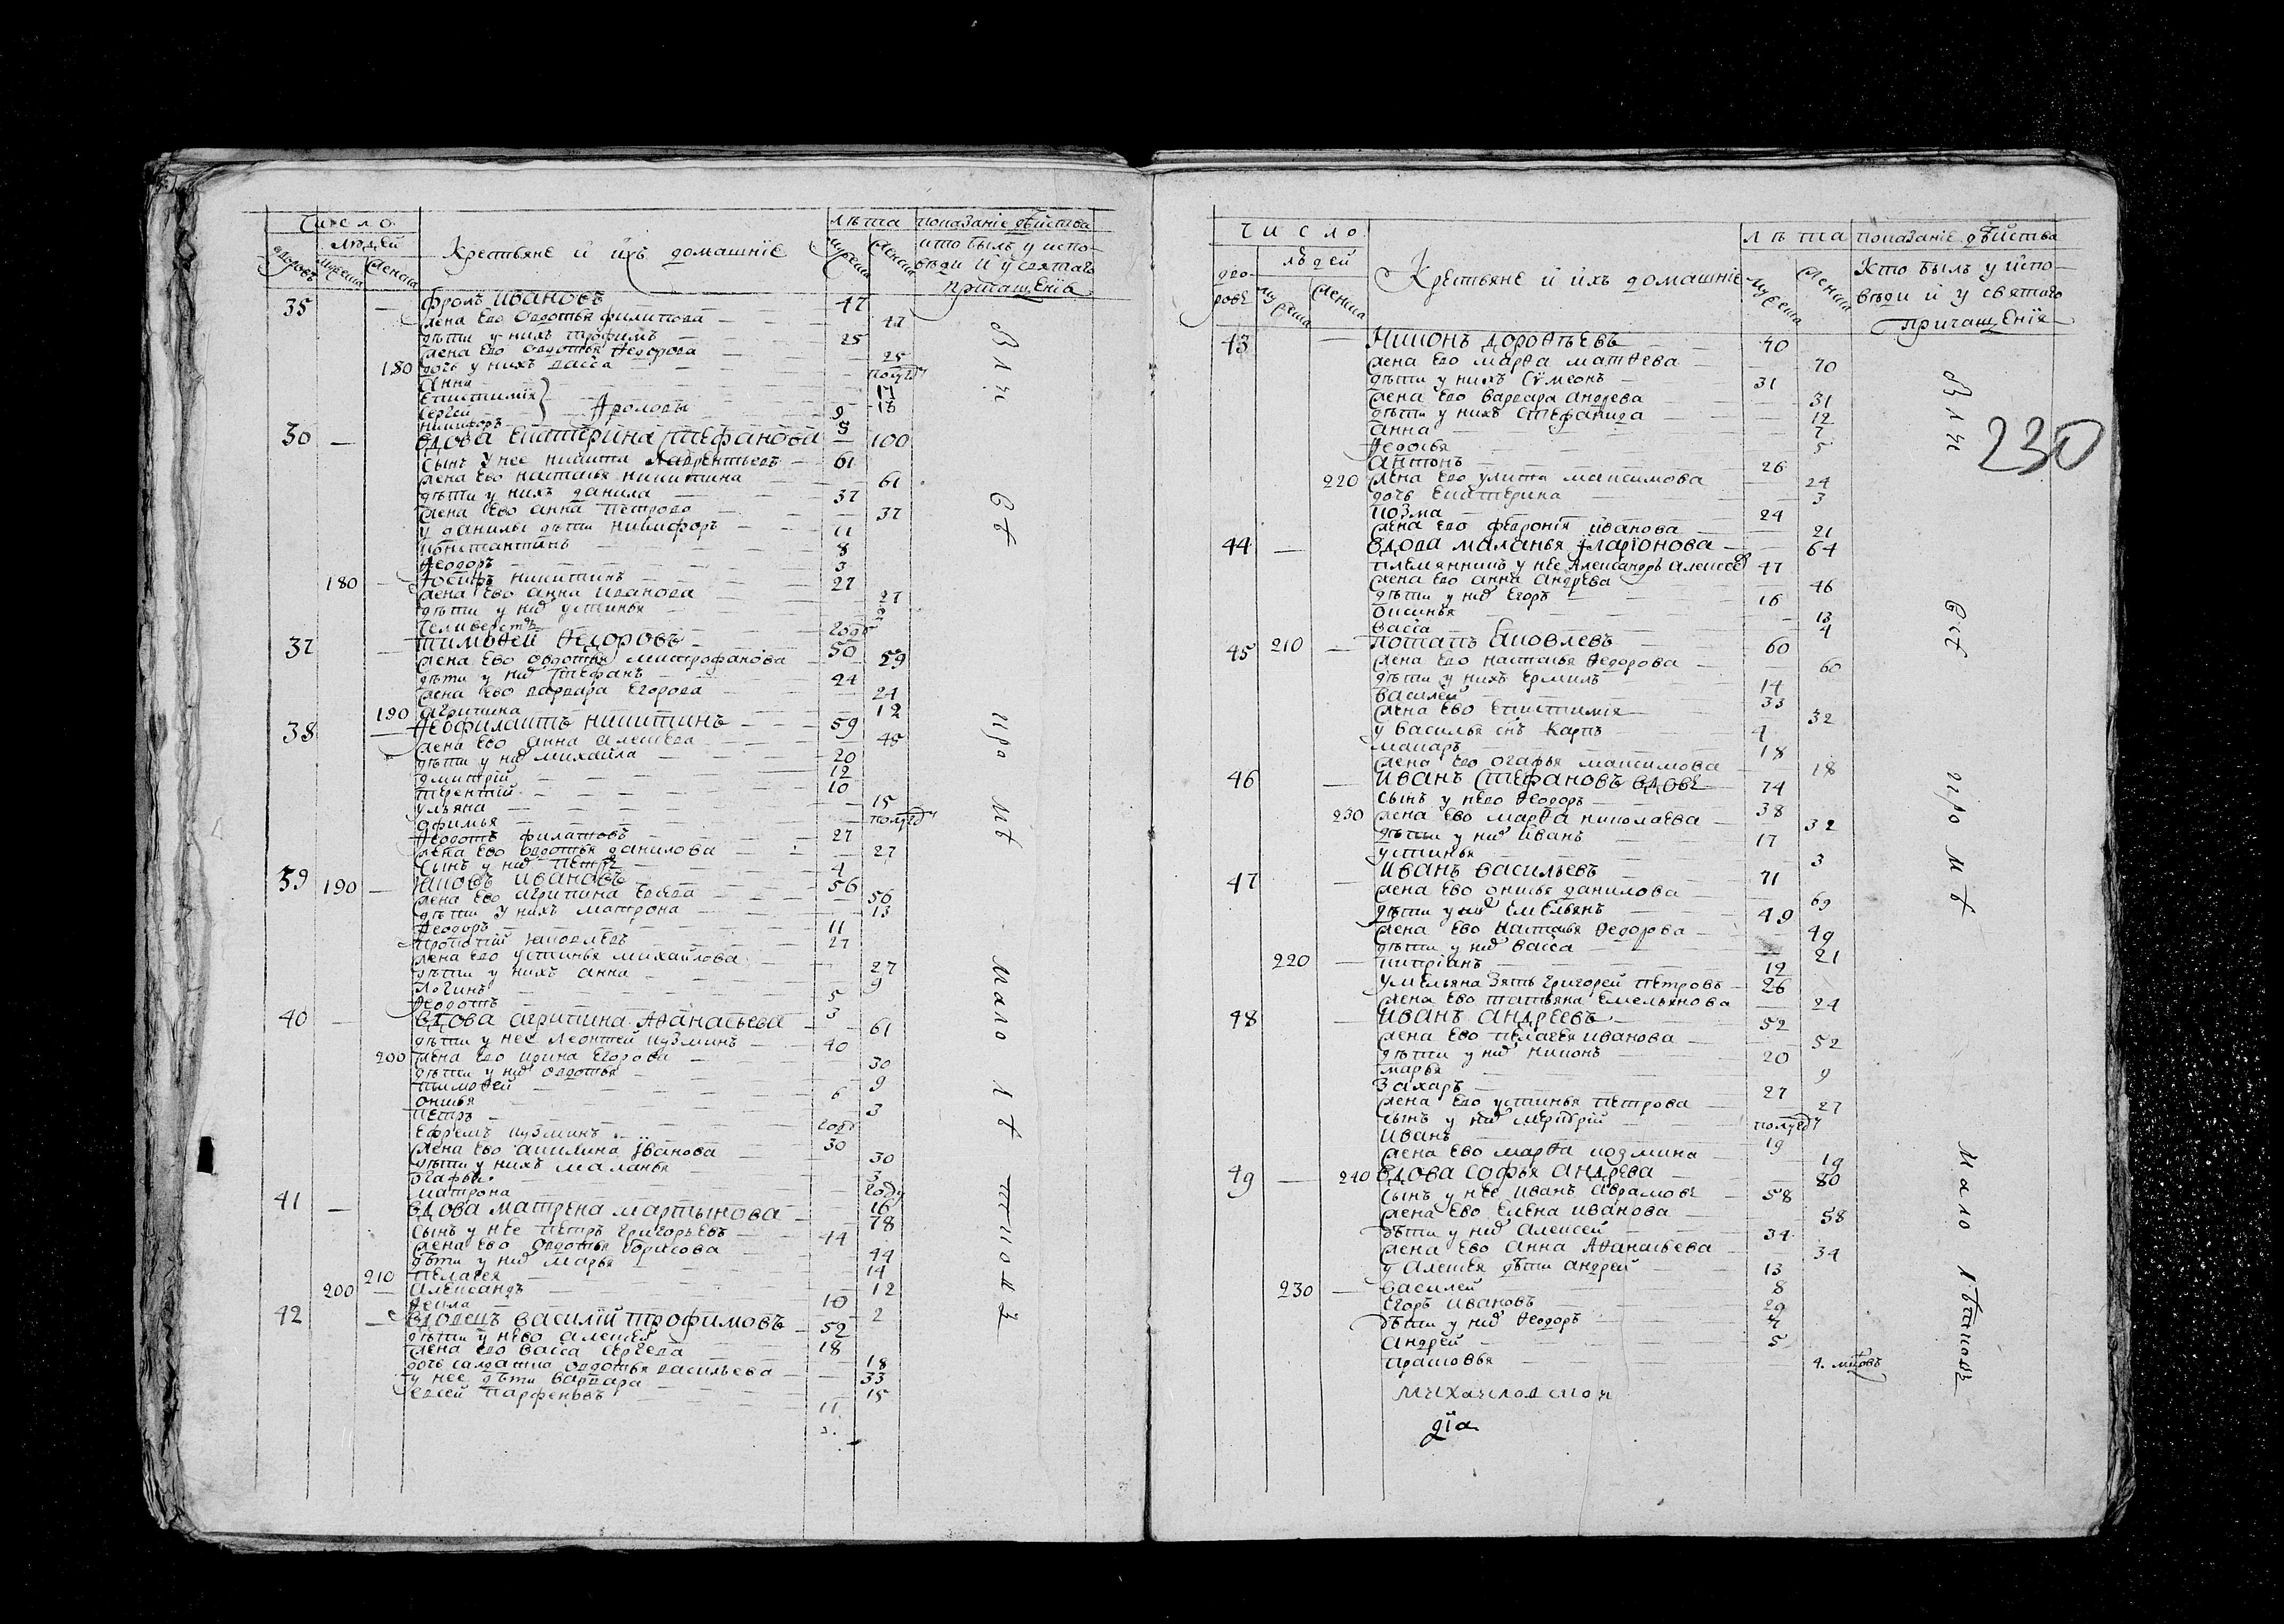 Число
людей
дворовъ мужеска женска
Крестьяне и ихъ домашніе
лѣта
мужеска женска
показаніе дѣйства
кто былъ у испо-
вѣди и у святаго
причащенія
35 — Фролъ Ивановъ — 47
жена ево Овдотья Филипова — 47
дѣти у нихъ Трофимъ — 25
жена ево Овдотья Ѳедорова — 25
180 дочь у нихъ Васса — полугоду
Анна
Епистимия
Сергей Фроловы 9
Никифоръ
30 — Вдова Екатерина Стефанова — 100
сынъ у нее Никита Лаврентьевъ — 61
жена ево Наталья Никитина — 61
дѣти у нихъ Данила — 37
жена ево Анна Петрова — 37
у Данилы дѣти Никифоръ — 11
Константинъ — 8
Ѳеодоръ — 3
180 — Иосифъ Никитинъ — 27
жена ево Анна Иванова — 27
дѣти у них Устинья — 2
Селиверстъ — годъ
37 — Тимоѳей Ѳедоровъ — 50
жена ево Овдотья Митрофанова — 59
дѣти у них Стефанъ — 24
жена ево Варвара Егорова — 24
190 Агрипина — 12
38 — Ѳеофилактъ Никитинъ — 59
жена ево Анна Алексеева — 45
дѣти у них Михайла — 20
Дмитрій — 12
Терентий — 10
Ульяна — 15
Офимья — полугоду
Ѳедотъ Филатовъ — 27
жена ево Овдотья Данилова — 27
сынъ у них Петръ — 4
39 190 — Яковъ Ивановъ — 56
жена ево Агрипина Евсеева — 56
дѣти у нихъ Матрона — 13
Ѳеодоръ — 11
Прокопій Яковлевъ — 27
жена ево Устинья Михайлова — 27
дѣти у нихъ Анна — 9
Логинъ — 5
Ѳедотъ — 3
40 — Вдова Агрипина Аѳанасьева — 61
дѣти у нее Леонтей Кузминъ — 40
200 жена ево Ирина Егорова — 30
дѣти у них Овдотья — 9
Тимоѳей — 6
Онисья — 3
Петръ — годъ
Ефремъ Кузминъ — 30
жена ево Акилина Іванова — 30
дѣти у нихъ Маланья — 3
Огафья — году
Матрона — 16
41 — Вдова Матрена Мартынова — 78
сынъ у нее Петръ Григорьевъ — 44
жена ево Овдотья Борисова — 44
дѣти у них Марья — 14
210 Пелагея — 12
200 — Александръ — 10
Ѳекла — 2
42 — Вдовецъ Василій Трофимовъ — 52
дѣти у нево Алексей — 18
жена ево Васса Сергеева — 18
дочь салдатка Овдотья Васильева — 33
у нее дѣти Варвара — 15
Евсей Парфеновъ — 11
влис
сѣ
про
мѣ
мало
лѣ
тковъ
230
Число
людей
дво-
ровъ му-
жеска женска
Крестьяне и ихъ домашніе
лѣта
мужеска женска
показаніе дѣйства
Кто былъ у испо-
вѣди и у святаго
причащенія
43 — Никонъ Дороѳѣевъ — 70
жена ево Марѳа Матѳѣева — 70
дѣти у нихъ Сѵмеонъ — 31
жена ево Варвара Андреева — 31
дѣти у нихъ Стефанида — 12
Анна — 7
Ѳедосья — 5
Антонъ — 26
220 жена ево Улита Максимова — 24
дочь Екатерина — 3
Козма — 24
жена ево Февронія Иванова — 21
44 — Вдова Маланья Іларіонова — 64
племянникъ у нее Александръ Алексеев 47
жена ево Анна Андреева — 46
дѣти у них Егоръ — 16
Оксинья — 13
Васса — 4
45 210 — Потапъ Яковлевъ — 60
жена ево Наталья Ѳедорова — 60
дѣти у нихъ Ермилъ — 14
Василей — 33
жена ево Епистимія — 32
у Василья снъ Карпъ — 4
Макаръ — 18
жена ево Огафья Максимова — 18
46 — Иванъ Стефановъ вдовъ — 74
сынъ у нево Ѳеодоръ — 38
230 жена ево Марѳа Николаева — 32
дѣти у них Иванъ — 17
Устинья — 3
47 — Иванъ Васильевъ — 71
жена ево Онисья Данилова — 69
дѣти у них Емельянъ — 49
жена ево Наталья Ѳедорова — 49
дѣти у них Васса — 21
220 — Кипріанъ — 12
у Мельяна зять Григорей Петровъ — 26
жена ево Татьяна Емельянова — 24
48 — Иванъ Андреевъ — 52
жена ево Пелагея Иванова — 52
дѣти у них Никонъ — 20
Марья — 9
Захаръ — 27
жена ево Устинья Петрова — 27
сынъ у них — полугоду
Иванъ — 19
жена ево Марѳа Козмина — 19
49 — 240 Вдова Софья Андреева — 80
сынъ у нее Иванъ Аврамовъ — 58
жена ево Елена Иванова — 58
дѣти у них Алексей — 34
жена ево Анна Аѳанасьева — 34
у Алексея дѣти Андрей — 13
230 — Василей — 8
Егоръ Ивановъ — 29
дѣти у них Ѳеодоръ — 7
Андрей — 5
Прасковья — 4
Михаиловской
дїа
влис
сѣ
про
мѣ
мало
лѣтковъ